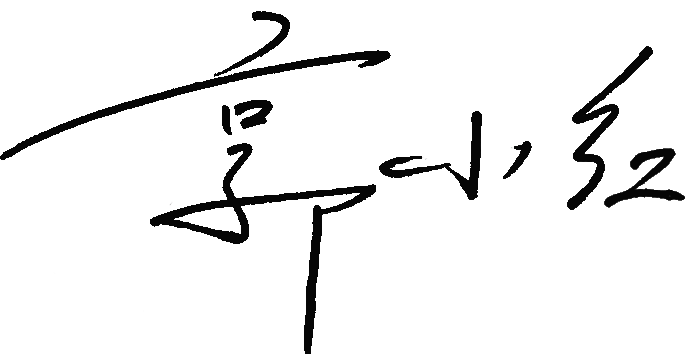 郭小红